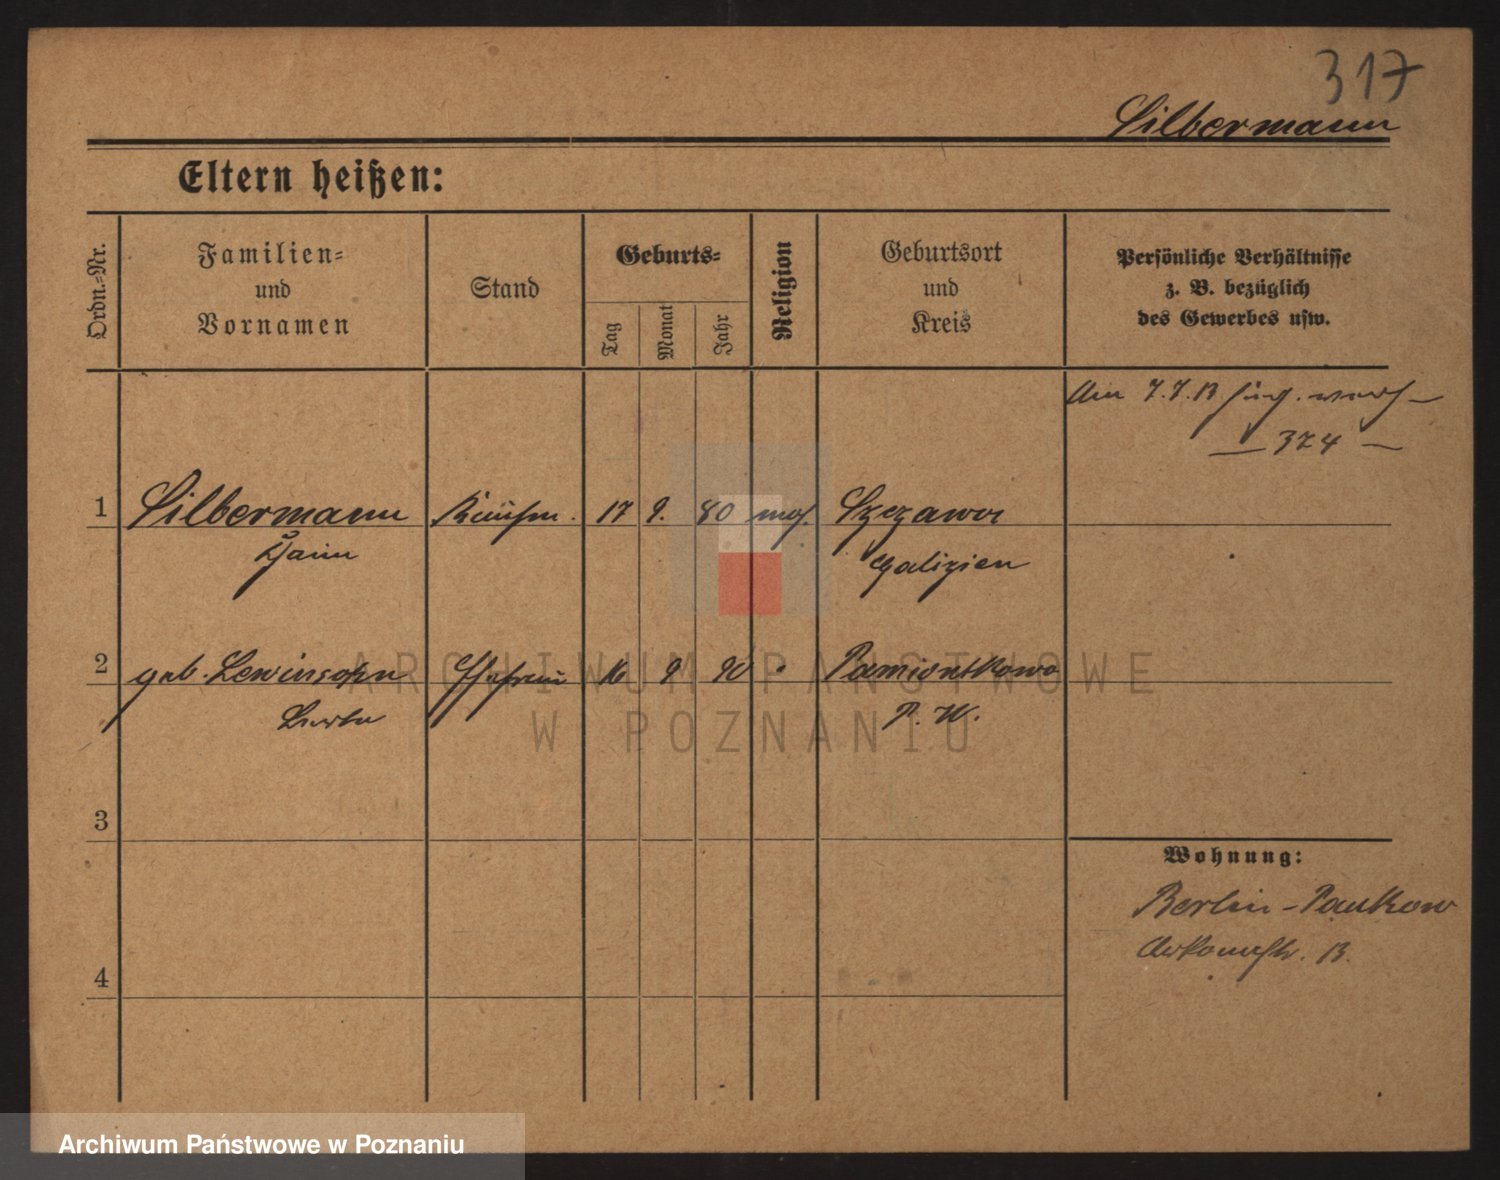 317
Silbermann
Eltern heißen:
Ordn.-Nr.
Familien-
und
Vornamen
Stand
Geburts-
Tag
Monat
Jahr
Religion
Geburtsort
und
Kreis
Persönliche Verhältnisse
z. B. bezüglich
des Gewerbes usw.
Am 7.7.13
374
1 Silbermann Kaufm. 17 9. 80 mos. Szczawa
Chaim Galizien
2 geb. Lewinsohn Ehefrau 16 9 90 Pamiontkowo
P. W.
3
4
Wohnung:
Berlin-Pankow
13.
ARCHIWUM PAŃSTWOWE
W POZNANIU
Archiwum Państwowe w Poznaniu